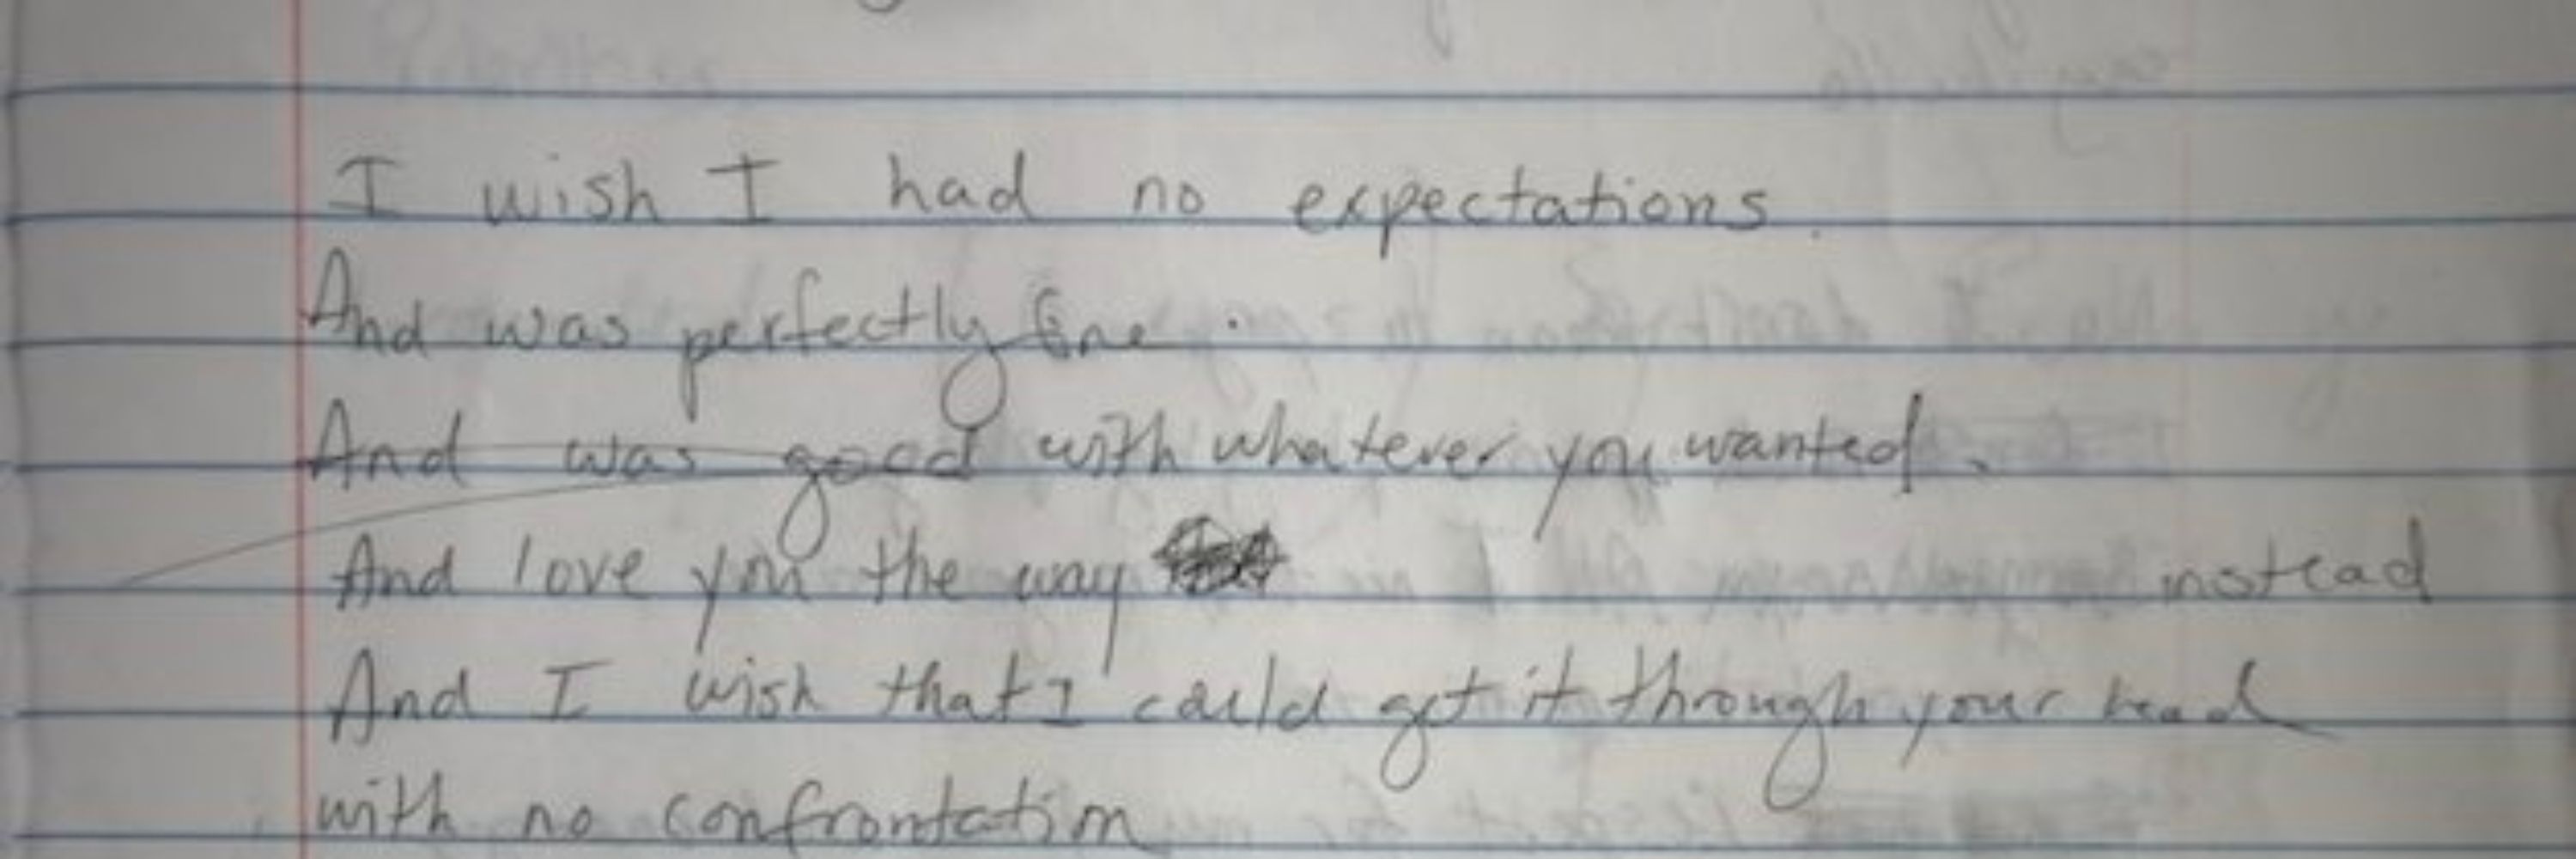 I wish I had no expectations.
And was perfectly fine.
And was good with whatever you wanted.
And love you the way instead
And I wish that I could get it through your head
with no confrontation